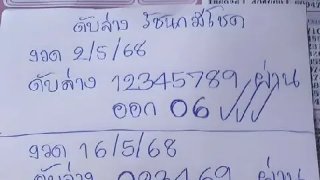 ดับล่าง รัชนก สีโชต
งวด 2/5/68
ดับล่าง 12345789 ผ่าน
ออก 06
งวด 16/5/68
ดับล่าง ผ่าน